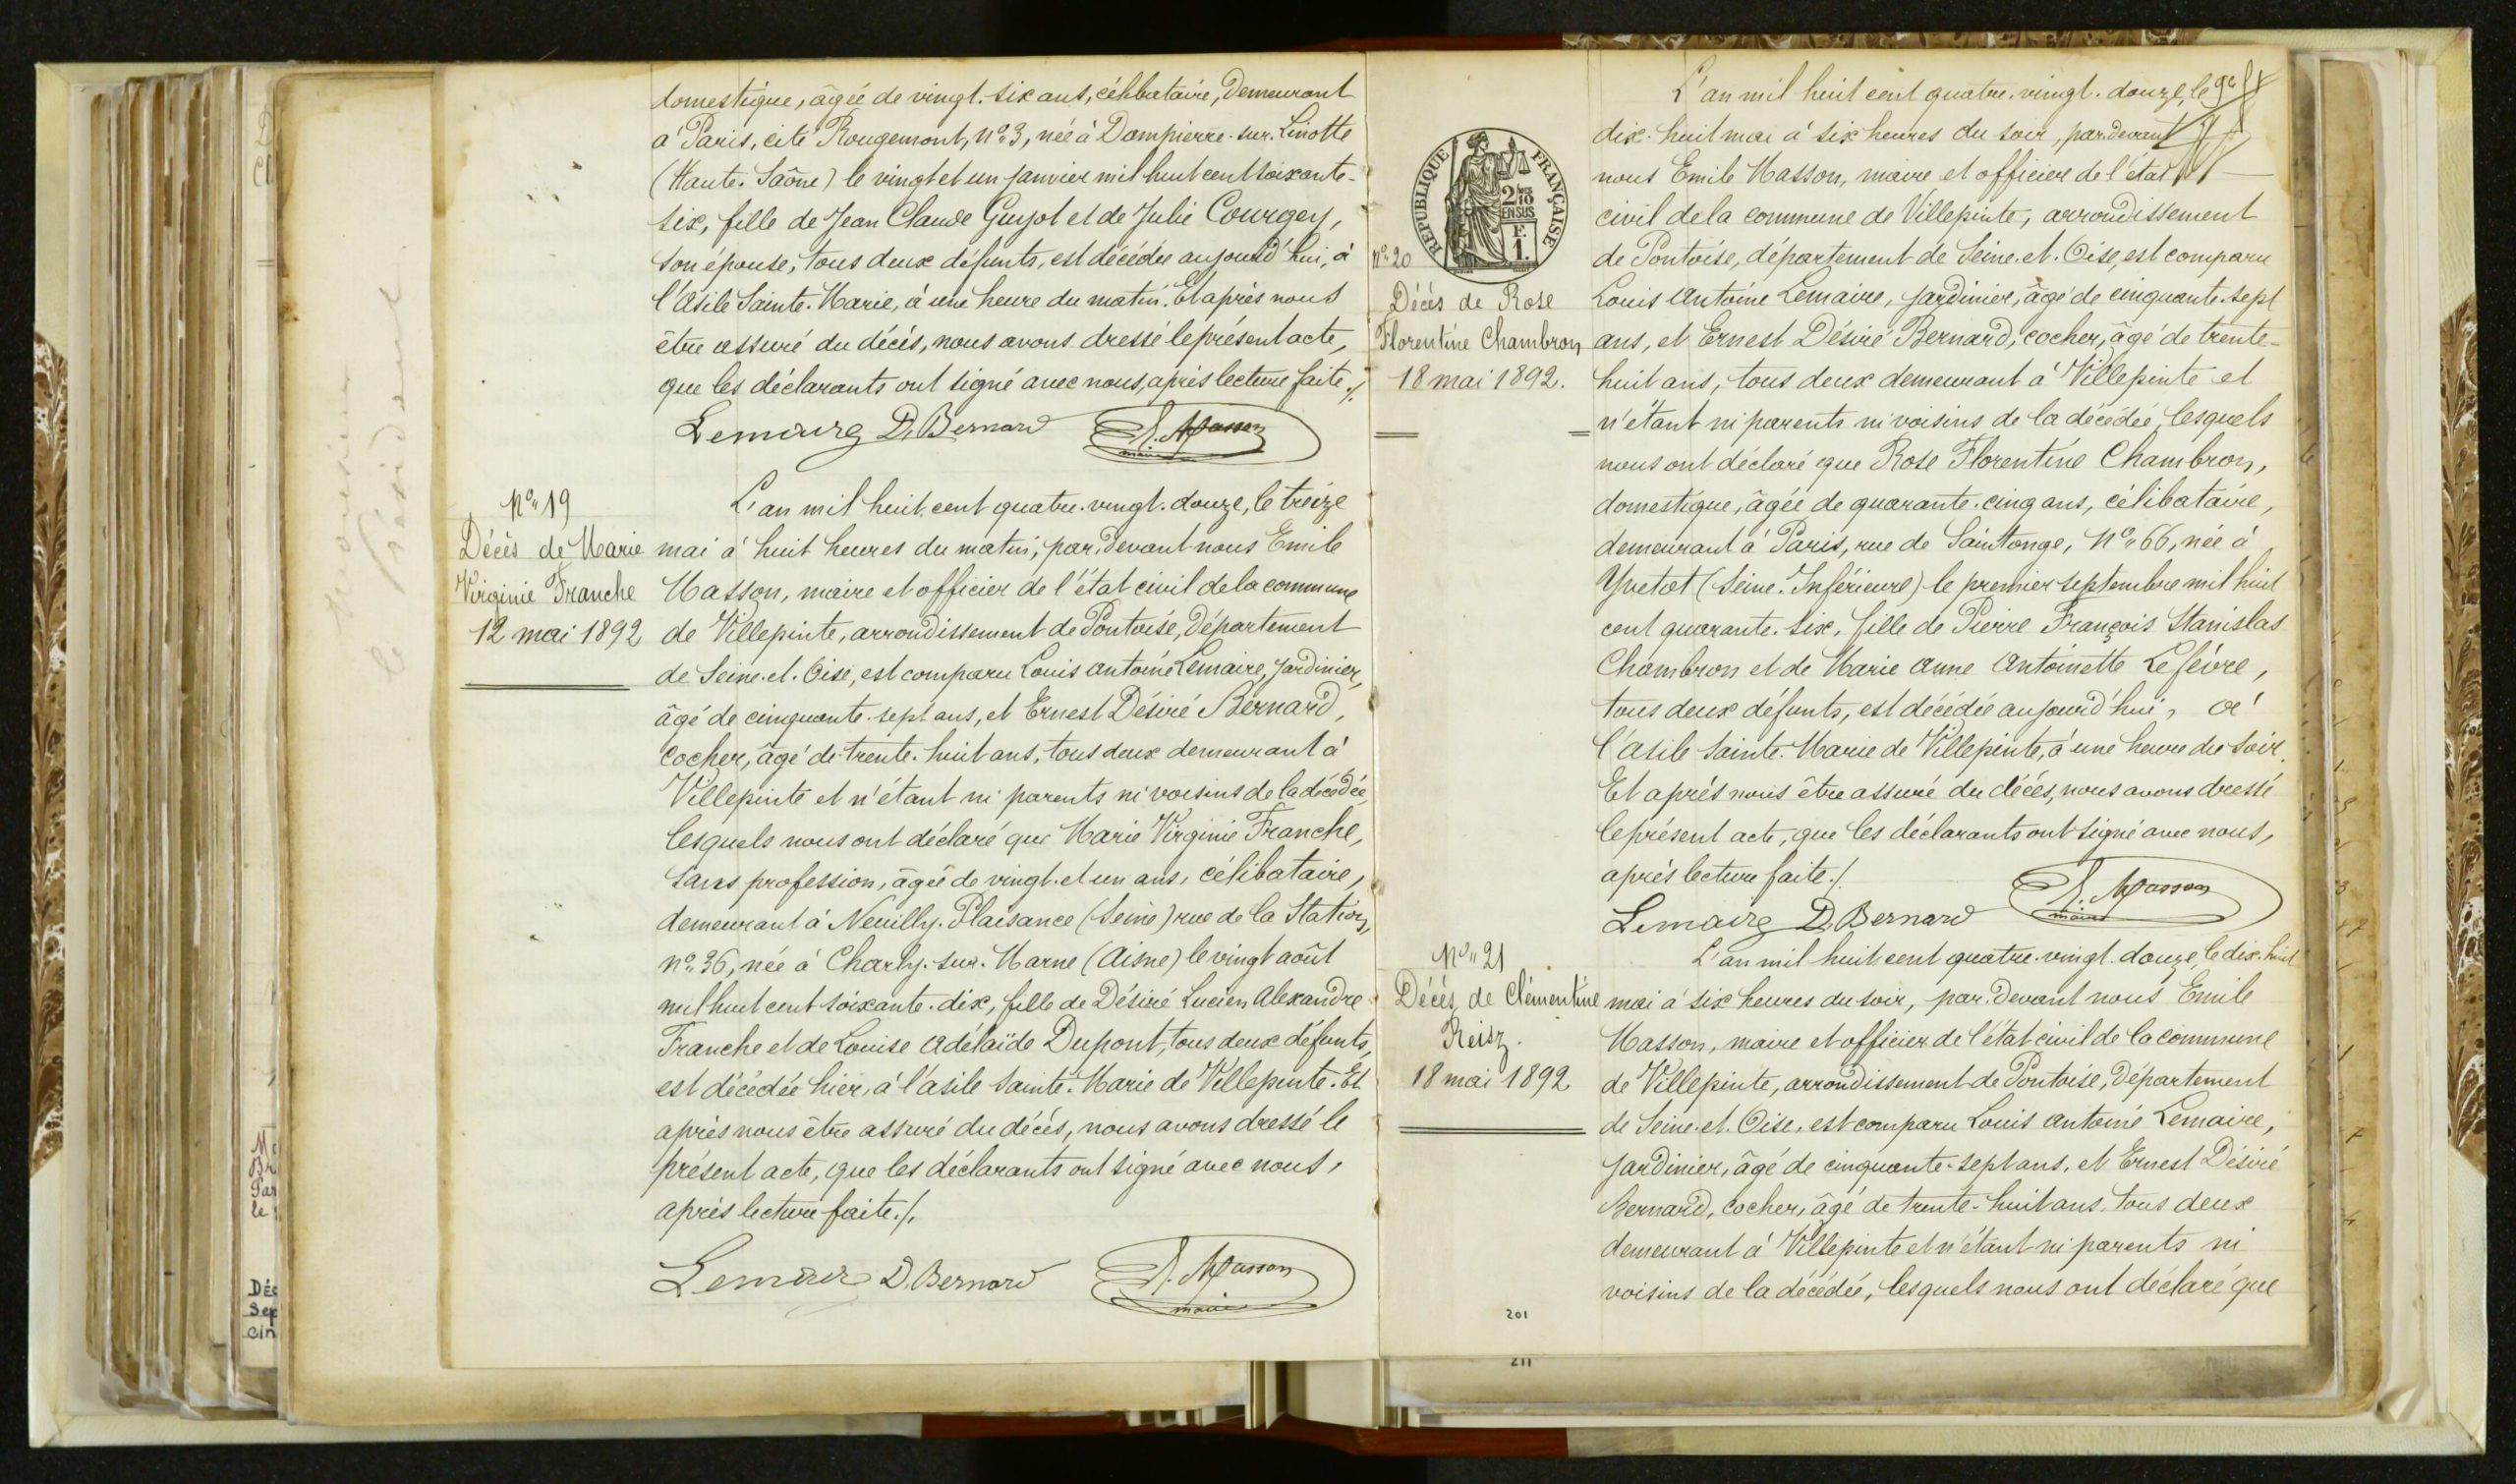 domestique, âgée de vingt-six ans, célibataire, demeurant
à Paris, cité Rougemont, nº 3, née à Dampierre-sur-Linotte
(Haute-Saône) le vingt et un janvier mil huit cent soixante-
six, fille de Jean Claude Guyot et de Julie Courgey,
son épouse, tous deux défunts, est décédée aujourd'hui, à
l'asile Sainte-Marie, à une heure du matin. Et après nous
être assuré du décès, nous avons dressé le présent acte,
que les déclarants ont signé avec nous, après lecture faite./.
Lemaire D. Bernard E. Masson
maire
Nº 19
Décès de Marie
Virginie Franche
12 mai 1892
L'an mil huit cent quatre-vingt-douze, le treize
mai à huit heures du matin, par devant nous Emile
Masson, maire et officier de l'état civil de la commune
de Villepinte, arrondissement de Pontoise, Département
de Seine-et-Oise, est comparu Louis Antoine Lemaire, jardinier,
âgé de cinquante-sept ans, et Ernest Désiré Bernard,
cocher, âgé de trente-huit ans, tous deux demeurant à
Villepinte et n'étant ni parents ni voisins de la décédée,
lesquels nous ont déclaré que Marie Virginie Franche,
sans profession, âgée de vingt-et un ans, célibataire,
demeurant à Neuilly-Plaisance (Seine) rue de la Station,
nº 36, née à Charly-sur-Marne (Aisne) le vingt août
mil huit cent soixante-dix, fille de Désiré Lucien Alexandre
Franche et de Louise Adélaïde Dupont, tous deux défunts,
est décédée hier, à l'asile Sainte-Marie de Villepinte. Et
après nous être assuré du décès, nous avons dressé le
présent acte, que les déclarants ont signé avec nous,
après lecture faite./.
Lemaire D. Bernard E. Masson
maire
RÉPUBLIQUE FRANÇAISE
2/10
EN SUS
F.
1.
nº 20
Décès de Rose
Florentine Chambron
18 mai 1892.
L'an mil huit cent quatre-vingt-douze, le
dix-huit mai à six heures du soir, par devant
nous Emile Masson, maire et officier de l'état
civil de la commune de Villepinte, arrondissement
de Pontoise, département de Seine-et-Oise, est comparu
Louis Antoine Lemaire, jardinier, âgé de cinquante-sept
ans, et Ernest Désiré Bernard, cocher, âgé de trente-
huit ans, tous deux demeurant à Villepinte et
n'étant ni parents ni voisins de la décédée, lesquels
nous ont déclaré que Rose Florentine Chambron,
domestique, âgée de quarante-cinq ans, célibataire,
demeurant à Paris, rue de Saintonge, Nº 66, née à
Yvetot (Seine-Inférieure) le premier septembre mil huit
cent quarante-six, fille de Pierre François Stanislas
Chambron et de Marie Anne Antoinette Lefèvre,
tous deux défunts, est décédée aujourd'hui, à
l'asile Sainte-Marie de Villepinte, à une heure du soir.
Et après nous être assuré du décès, nous avons dressé
le présent acte, que les déclarants ont signé avec nous,
après lecture faite./.
Lemaire D. Bernard E. Masson
maire
Nº 21
Décès de Clémentine
Reisz.
18 mai 1892
L'an mil huit cent quatre-vingt-douze, le dix-huit
mai à six heures du soir, par devant nous Emile
Masson, maire et officier de l'état civil de la commune
de Villepinte, arrondissement de Pontoise, Département
de Seine-et-Oise, est comparu Louis Antoine Lemaire,
jardinier, âgé de cinquante-sept ans, et Ernest Désiré
Bernard, cocher, âgé de trente-huit ans, tous deux
demeurant à Villepinte et n'étant ni parents ni
voisins de la décédée, lesquels nous ont déclaré que
201
211